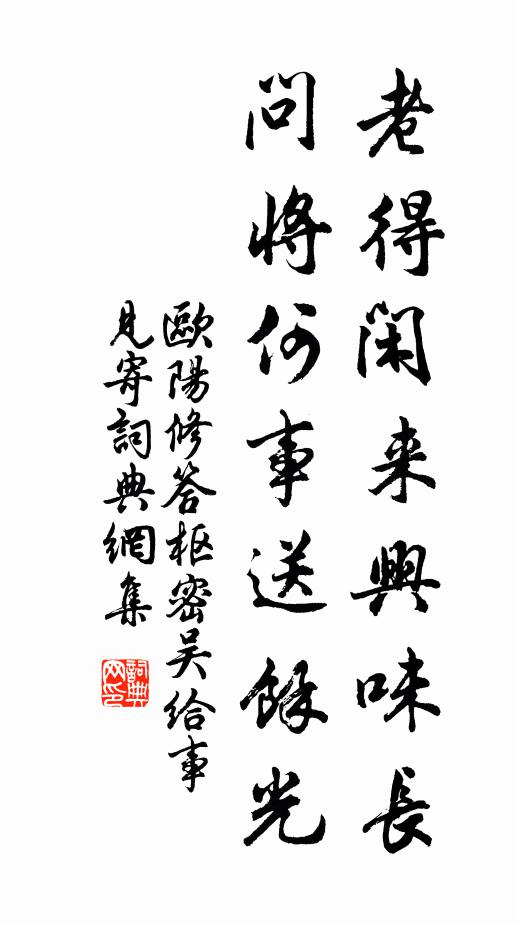 老得閑来興味長
問將何事送餘光
歐陽修答枢密吴給事
見寄詞典網集
詞典
网印